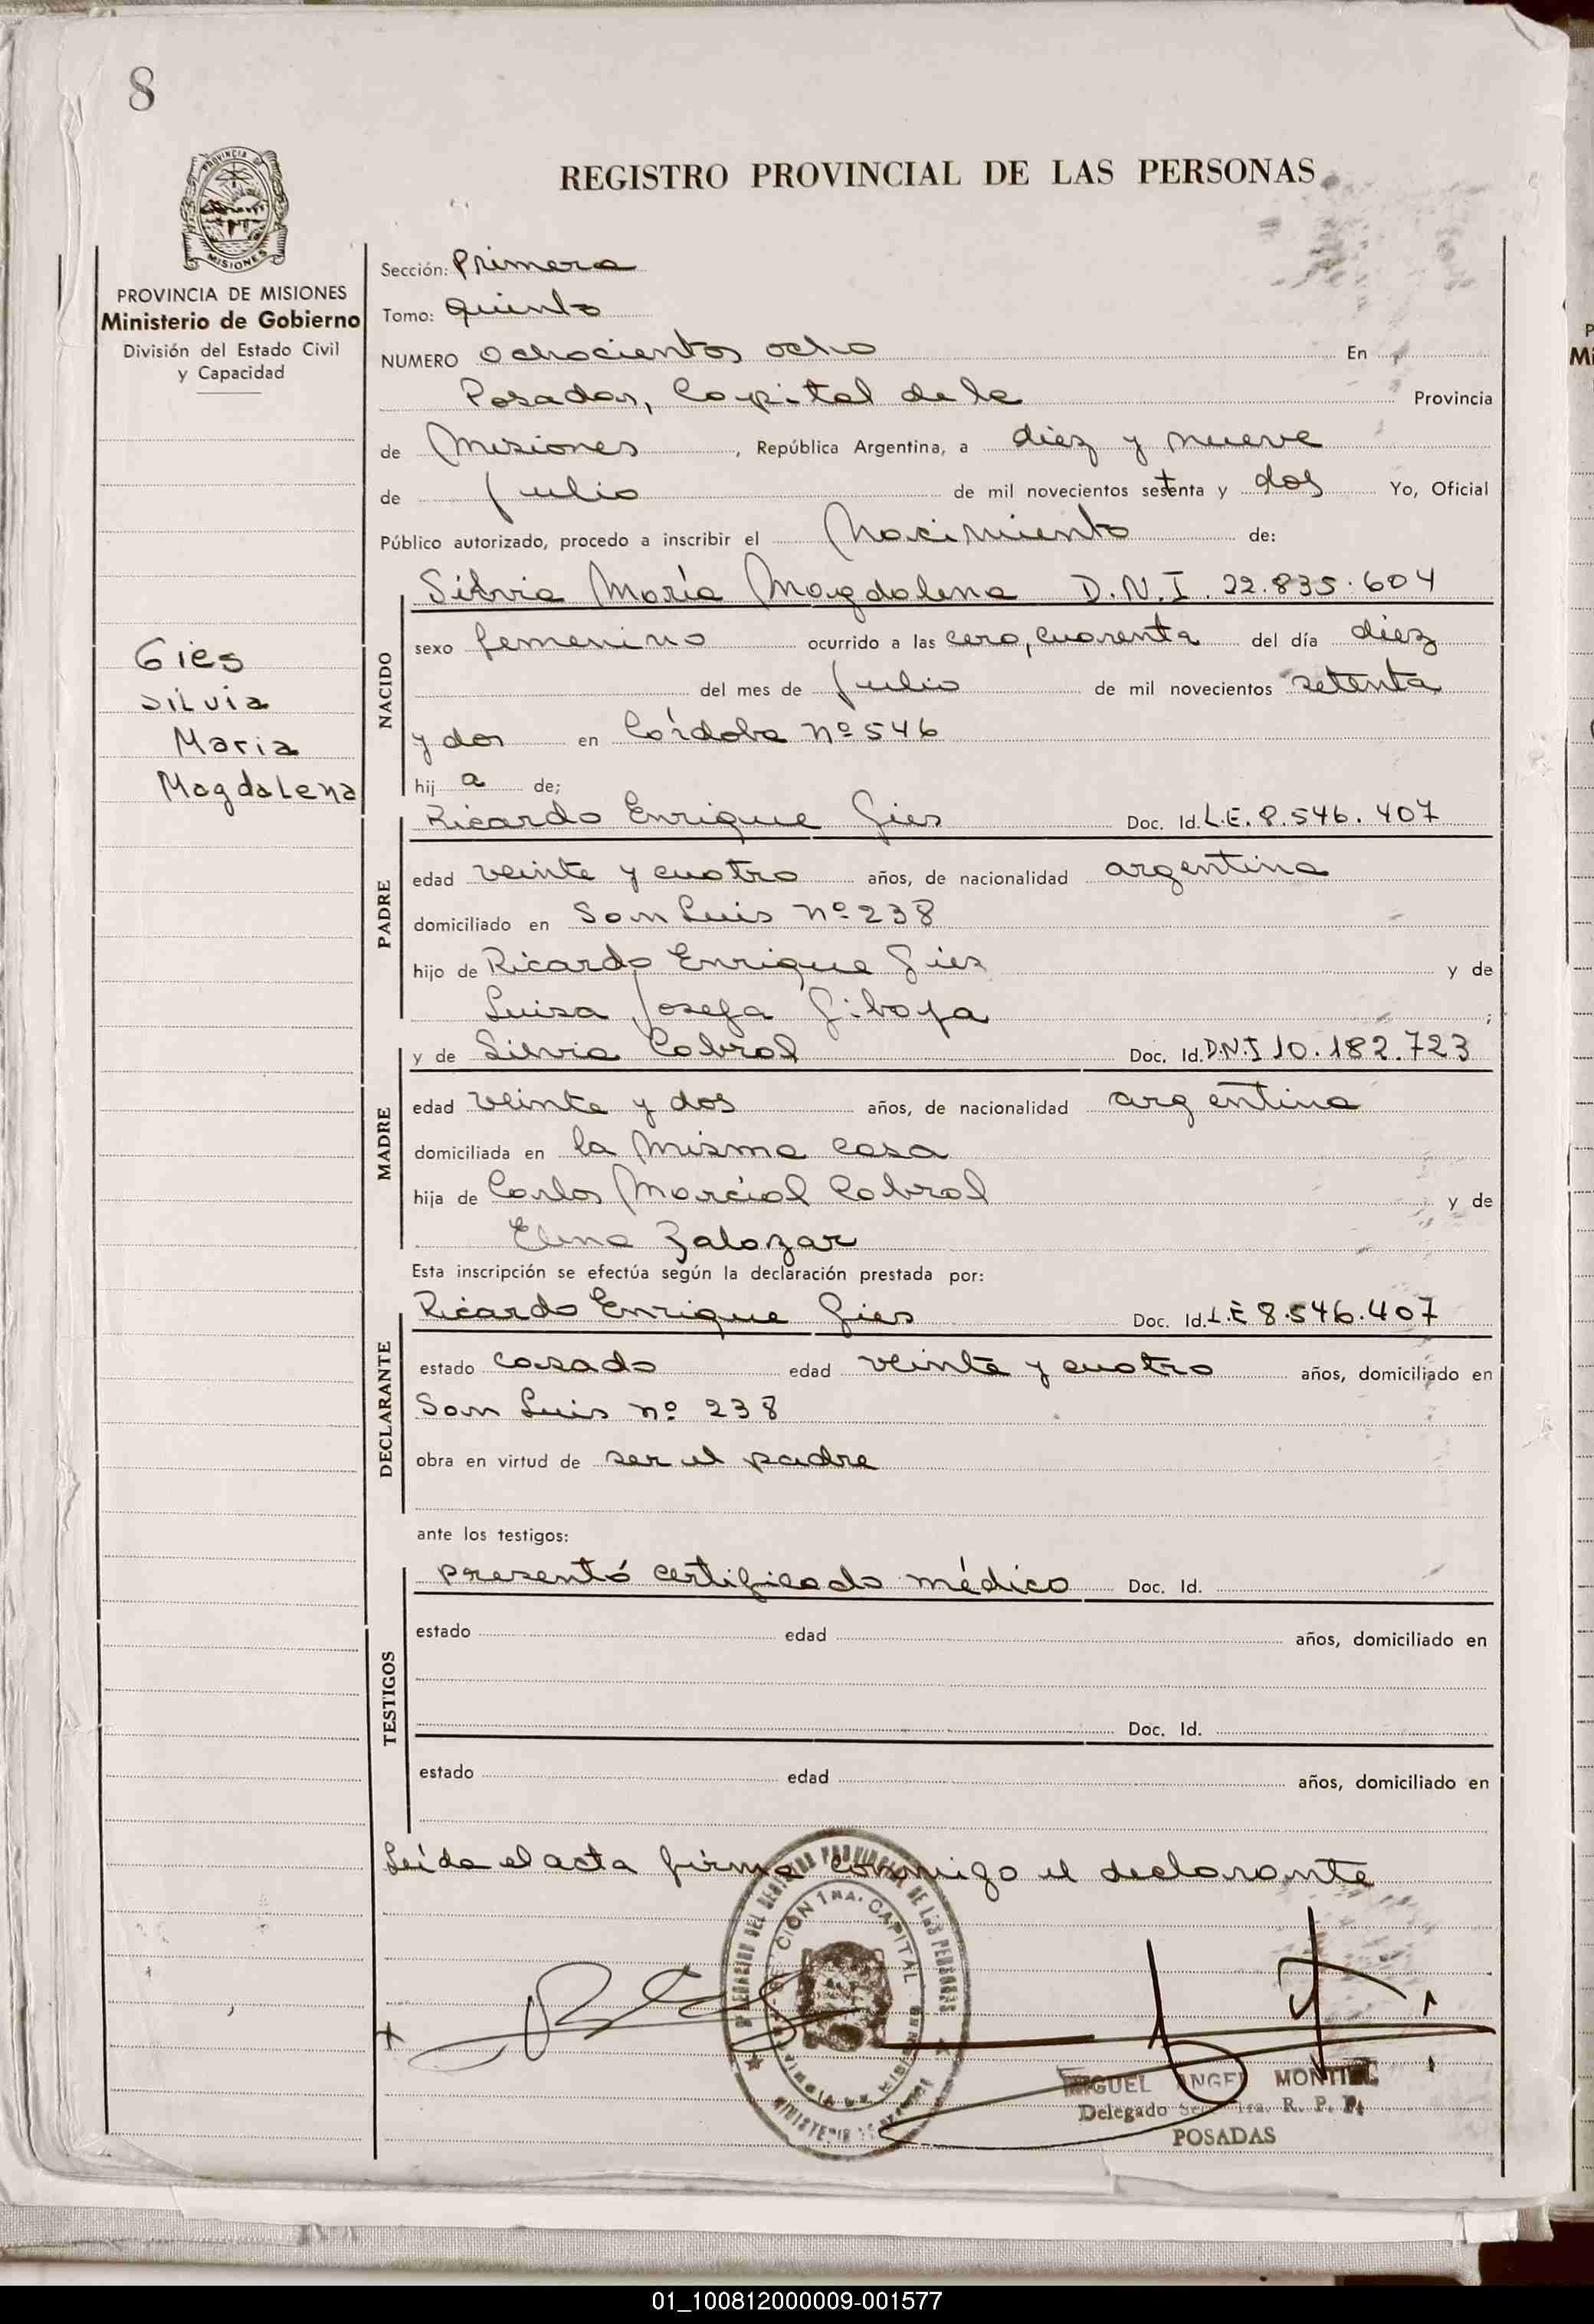 8
PROVINCIA DE
MISIONES
REGISTRO PROVINCIAL DE LAS PERSONAS
PROVINCIA DE MISIONES
Ministerio de Gobierno
División del Estado Civil
y Capacidad
Gies
Silvia
Maria
Magdalena
Sección: Primera
Tomo: Quinto
NUMERO Ochocientos ocho En
Posadas, Capital de la Provincia
de Misiones, República Argentina, a diez y nueve
de Julio de mil novecientos setenta y dos Yo, Oficial
Público autorizado, procedo a inscribir el Nacimiento de:
NACIDO
Silvia María Magdalena D.N.I. 22.835.604
sexo femenino ocurrido a las cero, cuarenta del día diez
del mes de Julio de mil novecientos setenta
y dos en Córdoba Nº 546
hij a de;
PADRE
Ricardo Enrique Gies Doc. Id. L.E. 8.546.407
edad veinte y cuatro años, de nacionalidad argentina
domiciliado en San Luis Nº 238
hijo de Ricardo Enrique Gies y de
Luisa Josefa Giboja;
MADRE
y de Silvia Cabral Doc. Id. D.N.I 10.182.723
edad veinte y dos años, de nacionalidad argentina
domiciliada en la misma casa
hija de Carlos Marcial Cabral y de
Elena Zalazar
Esta inscripción se efectúa según la declaración prestada por:
DECLARANTE
Ricardo Enrique Gies Doc. Id. L.E 8.546.407
estado casado edad veinte y cuatro años, domiciliado en
San Luis nº 238
obra en virtud de ser el padre
ante los testigos:
TESTIGOS
presentó certificado médico Doc. Id.
estado edad años, domiciliado en
Doc. Id.
estado edad años, domiciliado en
Leída el acta firma conmigo el declarante
DEL REGISTRO PROVINCIAL DE LAS PERSONAS
SECCION 1RA. CAPITAL
MIGUEL ANGEL MONTIEL
Delegado Secc. 1ra. R. P. P.
POSADAS
01_100812000009-001577